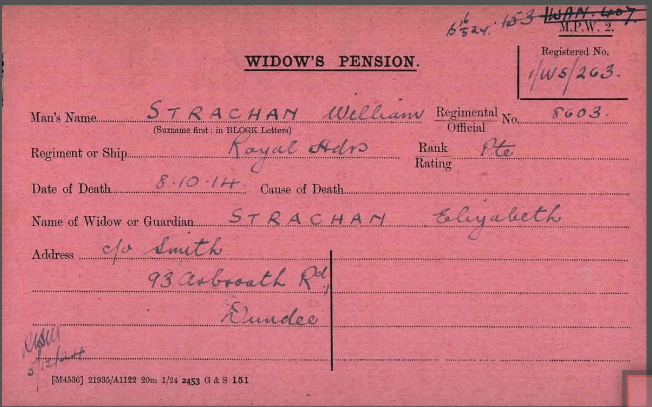 153 IWAN. 407.
M.P.W. 2.
WIDOW'S PENSION.
Registered No.
1/WS/263.
Man's Name STRACHAN William Regimental Official No. 8603.
(Surname first: in BLOCK Letters)
Regiment or Ship Royal Hdrs Rank Rating Pte
Date of Death 8.10.14. Cause of Death
Name of Widow or Guardian STRACHAN Elizabeth
Address c/o Smith
93 Arbroath Rd,
Dundee
[M4536] 21935/A1122 20m 1/24 2453 G & S 151